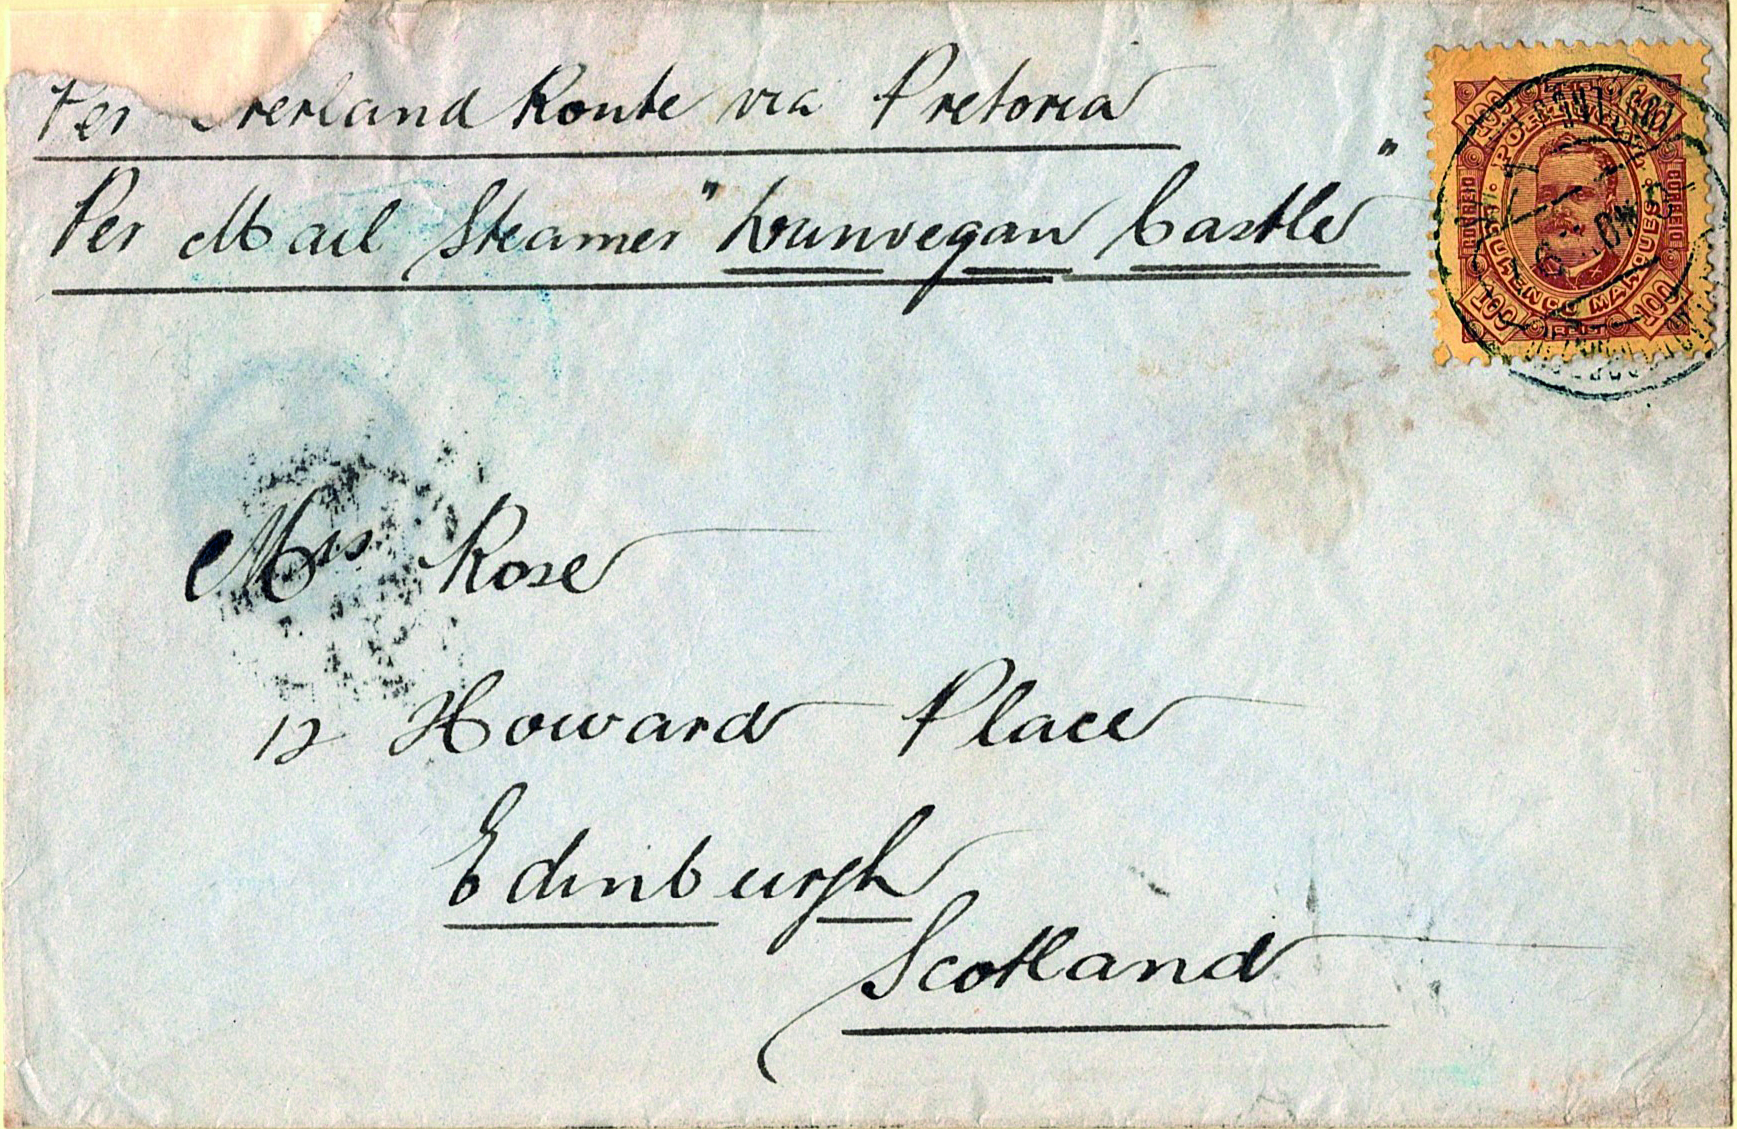 Per Overland Route via Pretoria
Per Mail Steamer "Dunvegan Castle"
100 100
CORREIO
LOURENCO MARQUES
100 REIS 100
Mrs Rose
12 Howard Place
Edinburgh
Scotland